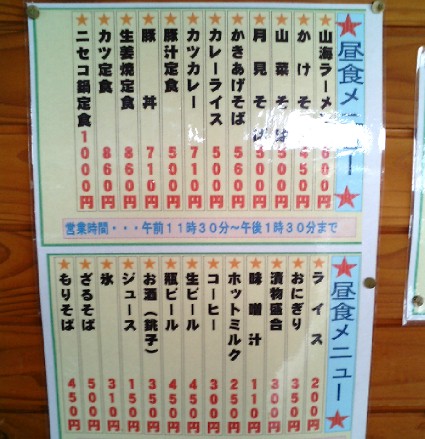 昼食メニュー
山海ラーメン 600円
かけそば 450円
山菜そば 500円
月見そば 500円
かきあげそば 560円
カレーライス 500円
カツカレー 710円
豚汁定食 500円
豚丼 710円
生姜焼定食 860円
カツ定食 860円
ニセコ鍋定食 1000円
営業時間・・・午前11時30分～午後1時30分まで
昼食メニュー
ライス 200円
おにぎり 350円
漬物盛合 300円
味噌汁 110円
ホットミルク 250円
コーヒー 300円
生ビール 450円
瓶ビール 450円
お酒(銚子) 350円
ジュース 150円
氷 310円
ざるそば 500円
もりそば 450円